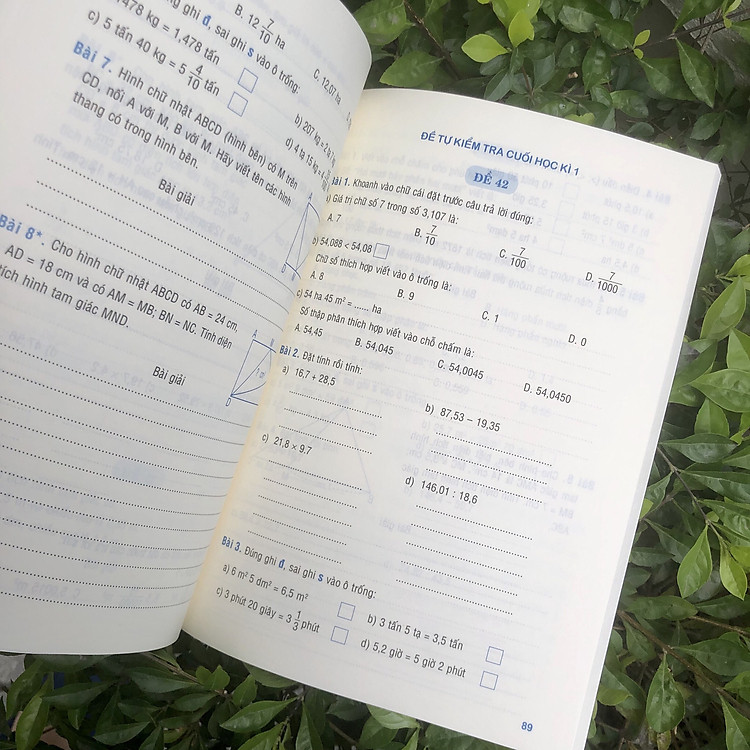 B. 12 7/10 ha
C. 12,07 ha
ghi đ, sai ghi s vào ô trống:
1,478 tấn
b) 207 kg = 2
c) 5 tấn 40 kg = 5 4/10 tấn
d) 4 tạ 15 kg =
Bài 7. Hình chữ nhật ABCD (hình bên) có M trên
CD, nối A với M, B với M. Hãy viết tên các hình
thang có trong hình bên.
Bài giải
Bài 8*. Cho hình chữ nhật ABCD có AB = 24 cm,
AD = 18 cm và có AM = MB; BN = NC. Tính diện
tích hình tam giác MND.
A
Bài giải
D
ĐỀ TỰ KIỂM TRA CUỐI HỌC KÌ 1
ĐỀ 42
Bài 1. Khoanh vào chữ cái đặt trước câu trả lời đúng:
a) Giá trị chữ số 7 trong số 3,107 là:
A. 7 B. 7/10 C. 7/100 D. 7/1000
b) 54,088 < 54,08
Chữ số thích hợp viết vào ô trống là:
A. 8 B. 9 C. 1 D. 0
c) 54 ha 45 m² = ...... ha
Số thập phân thích hợp viết vào chỗ chấm là:
A. 54,45 B. 54,045 C. 54,0045 D. 54,0450
Bài 2. Đặt tính rồi tính:
a) 16,7 + 28,5 b) 87,53 – 19,35
c) 21,8 × 9,7 d) 146,01 : 18,6
Bài 3. Đúng ghi đ, sai ghi s vào ô trống:
a) 6 m² 5 dm² = 6,5 m² b) 3 tấn 5 tạ = 3,5 tấn
c) 3 phút 20 giây = 3 1/3 phút d) 5,2 giờ = 5 giờ 2 phút
89